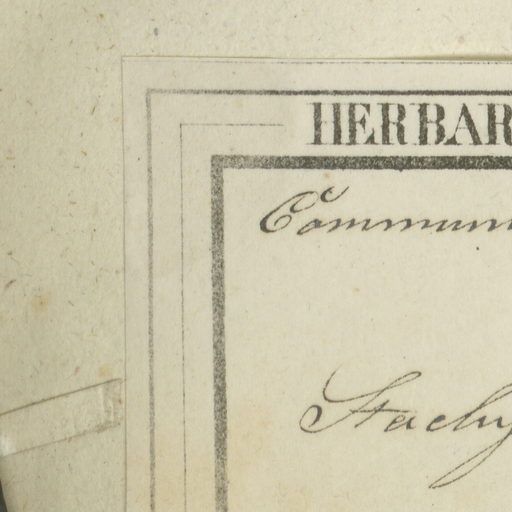 HERBAR
Commun
Stachy